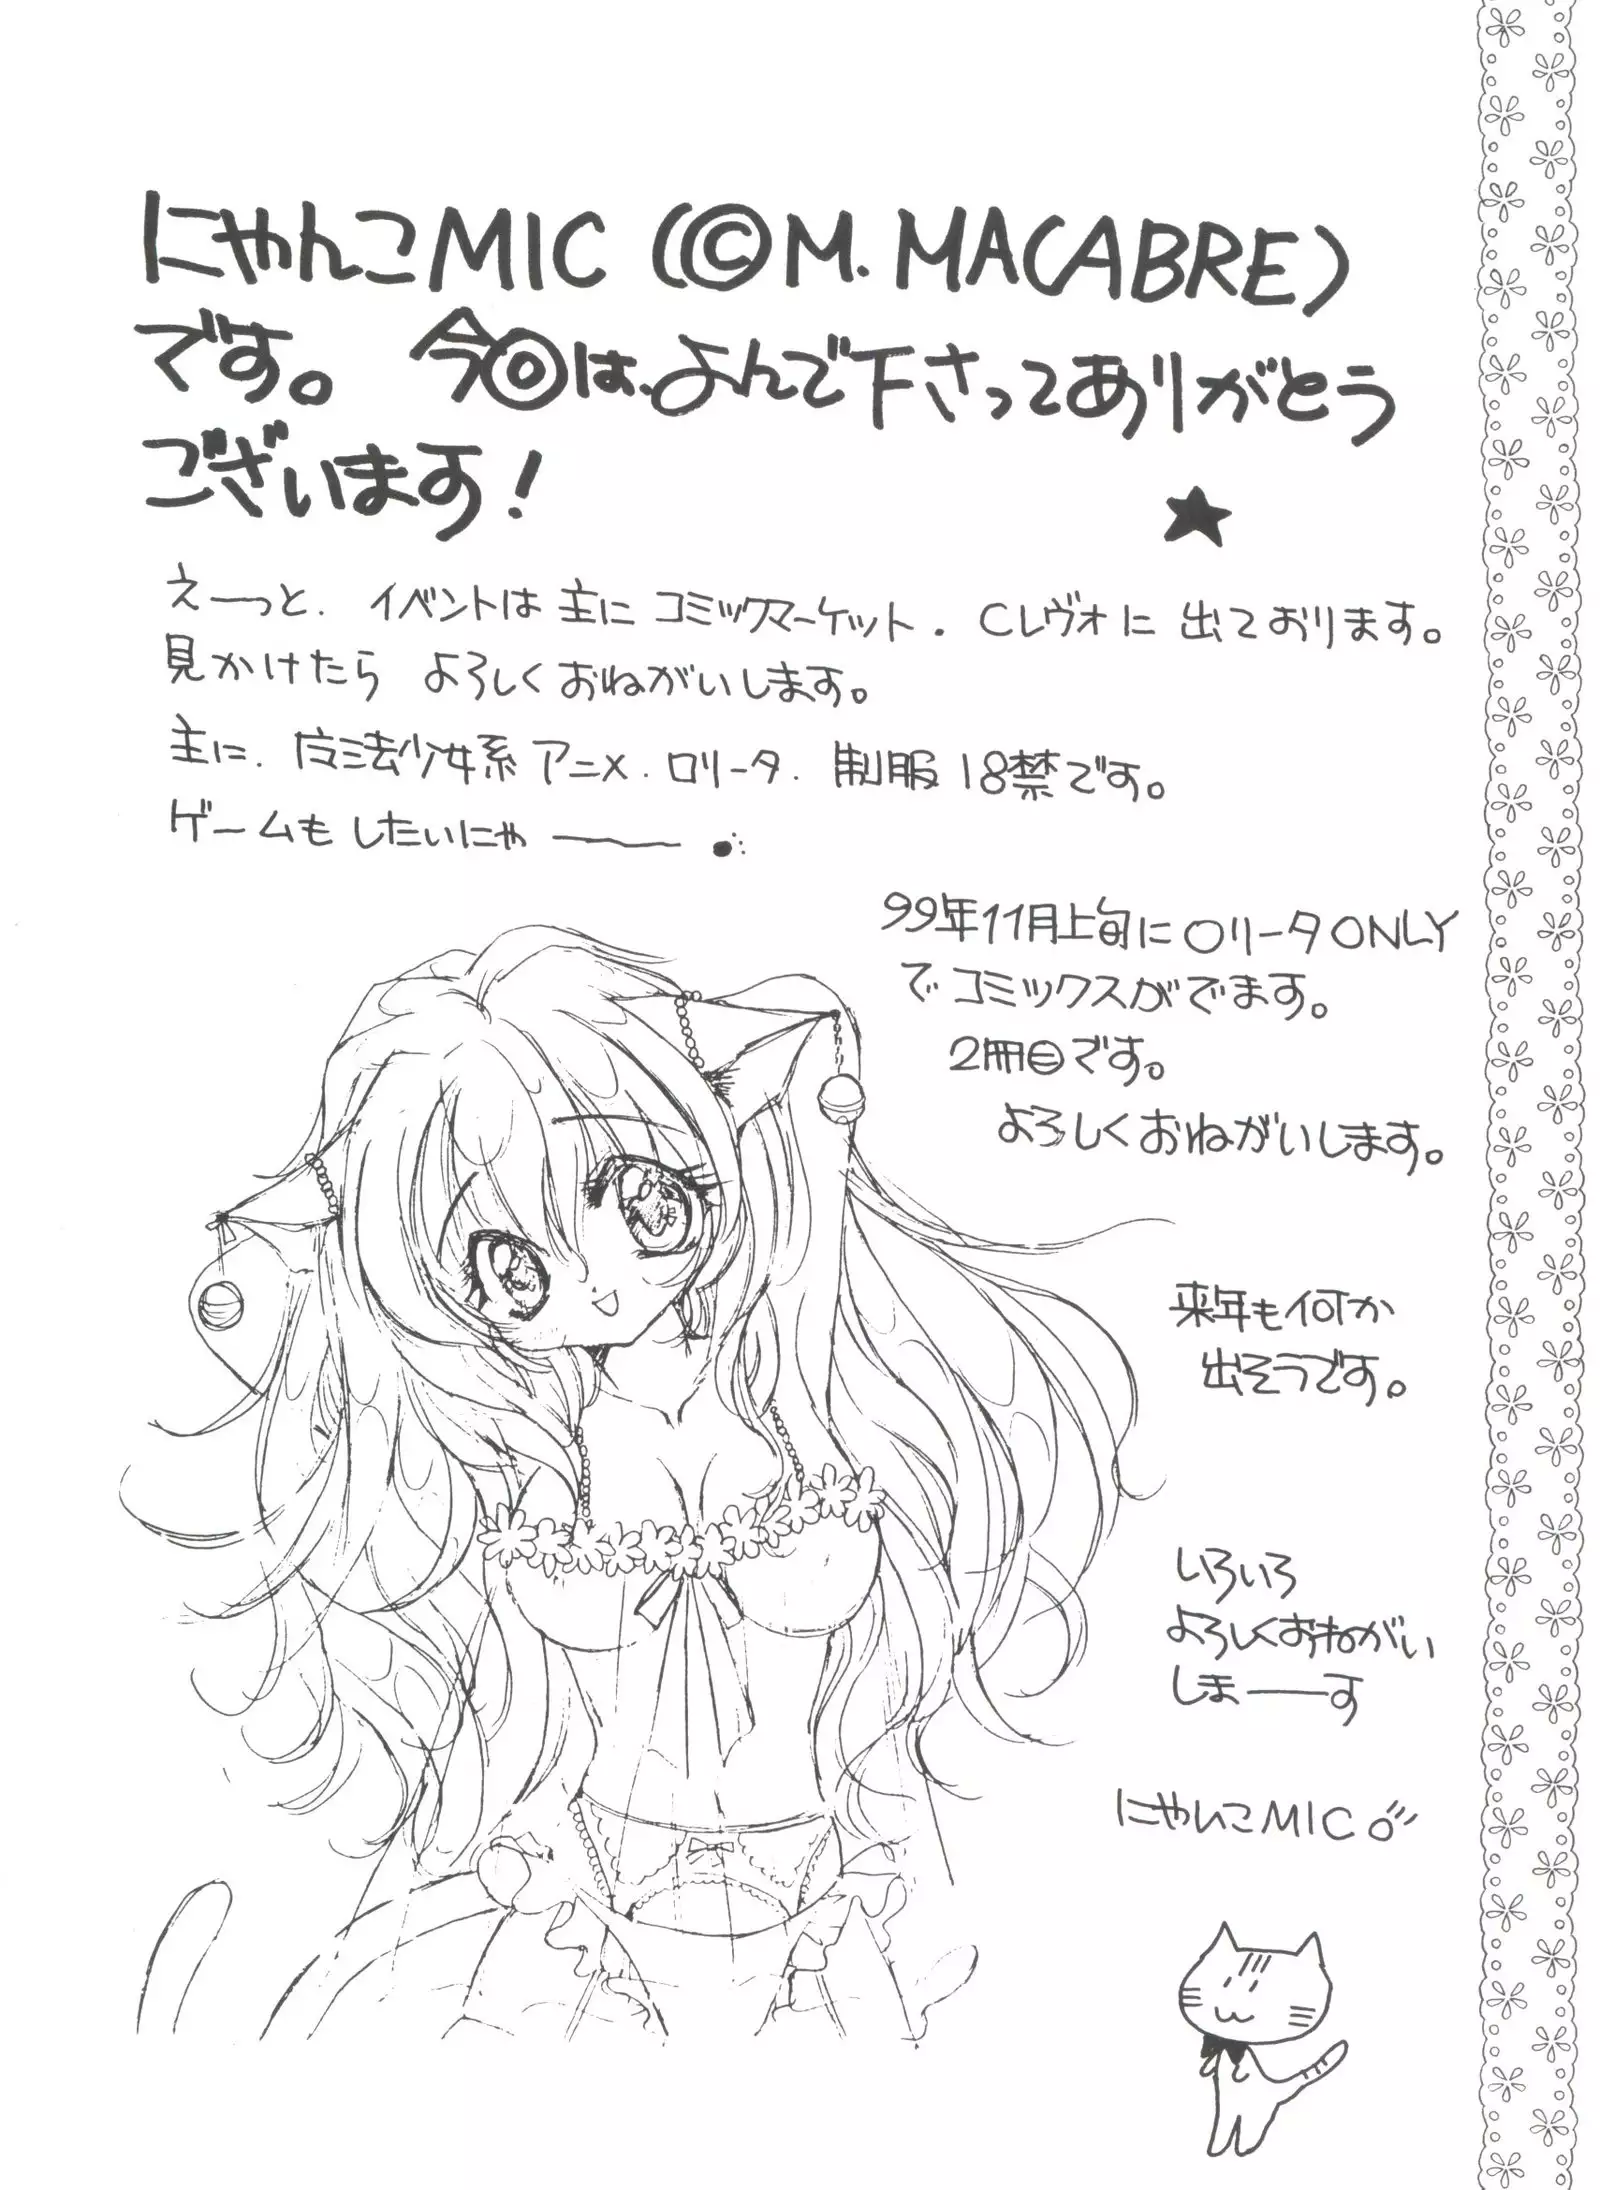 にゃんこMIC (©M. MACABRE)
です。 今回は、よんで下さってありがとう
ございます!
えーっと、イベントは主にコミックマーケット、Cレヴォに出ております。
見かけたら よろしくおねがいします。
主に、魔法少女系アニメ、ロリータ、制服18禁です。
ゲームもしたいにゃ——
99年11月上旬にロリータONLY
でコミックスがでます。
2冊目です。
よろしくおねがいします。
来年も何か
出そうです。
いろいろ
よろしくおねがい
しまーーす
にゃんこMIC